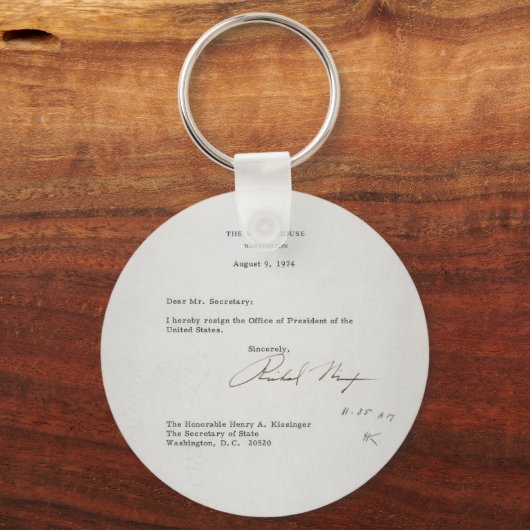 THE HOUSE
WASHINGTON
August 9, 1974
Dear Mr. Secretary:
I hereby resign the Office of President of the
United States.
Sincerely,
Richard Nixon
11.35 AM
HK
The Honorable Henry A. Kissinger
The Secretary of State
Washington, D. C. 20520